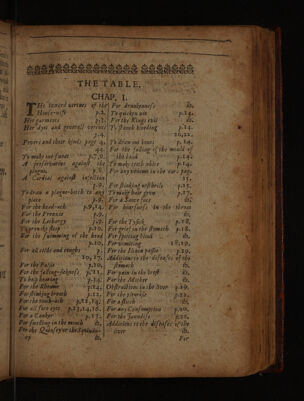 THE TABLE.
CHAP. I.
THe inward vertues of the
House-wife p.2.
Her garments p.3.
Her diet and generall vertues
p.4.
Feavers and their kinds page 4,
To make
A preservative against the
plague. p.8.
A Cordial against infection
p.9.
To draw a plague-botch to any
place p.9.
For the head-ach p.9,14.
For the Frenzie p.9.
For the Lethargy p.9.
To provoke sleep p.10.
For the swimming of the head
p.10.
For all colds and coughs
10, 17.
For the Palsie p.10.
For the falling-sicknes p.11.
To help hearing p.11.
For the Rheume p.14.
For stinking breath p.12.
For the tooth-ach p.12,14.
For all sore eyes p.13,14,16.
For a Canker p.17.
For swelling in the mouth ib.
For the Quinsey or the
ib.
For drunkennesse ib.
To quicken wit p.14.
For the Kings evil ib.
To stanch bleeding p.14.
20,22.
To draw out bones p.14.
For the falling of the mould of
the head p.14.
To make teeth white p.14.
For any venome in the ear. pag.
15.
For stinking nostrils p.25.
To make hair grow p.27.
For a face ib.
For hoarsnesse in the throat
ib.
For the Tysick p.18.
For grief in the stomach p.18.
For spitting blood ib.
For vomiting 18,19.
For the Iliaca passio p.19.
Additions to the diseases of the
stomach ib.
For pain in the brest ib.
For the Mother ib.
Obstruction in the liver p.19.
For the p.22.
For a stitch ib.
For any Consumption p.20.
For the Jaundise p.22.
Additions to the diseases of the
liver ib.
For